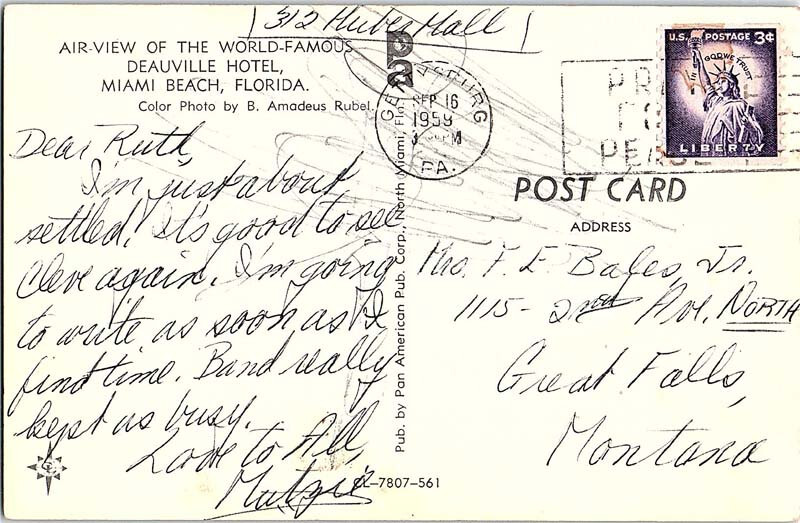 312 Huber Hall
AIR-VIEW OF THE WORLD-FAMOUS
DEAUVILLE HOTEL,
MIAMI BEACH, FLORIDA.
Color Photo by B. Amadeus Rubel.
Dear Ruth,
I'm just about
settled. It's good to see
Cleve again. I'm going
to write as soon as I
find time. Band really
kept us busy.
Love to All,
Pub. by Pan American Pub. Corp., North Miami, Fla.
GETTYSBURG
SEP 16
1959
PM
PA.
PRAY
FOR
PEACE
U.S. POSTAGE 3¢
IN GOD WE TRUST
LIBERTY
POST CARD
ADDRESS
Mrs. F. E. Bales, Jr.
1115 - 2nd Ave. NORTH
Great Falls,
Montana
L-7807-561